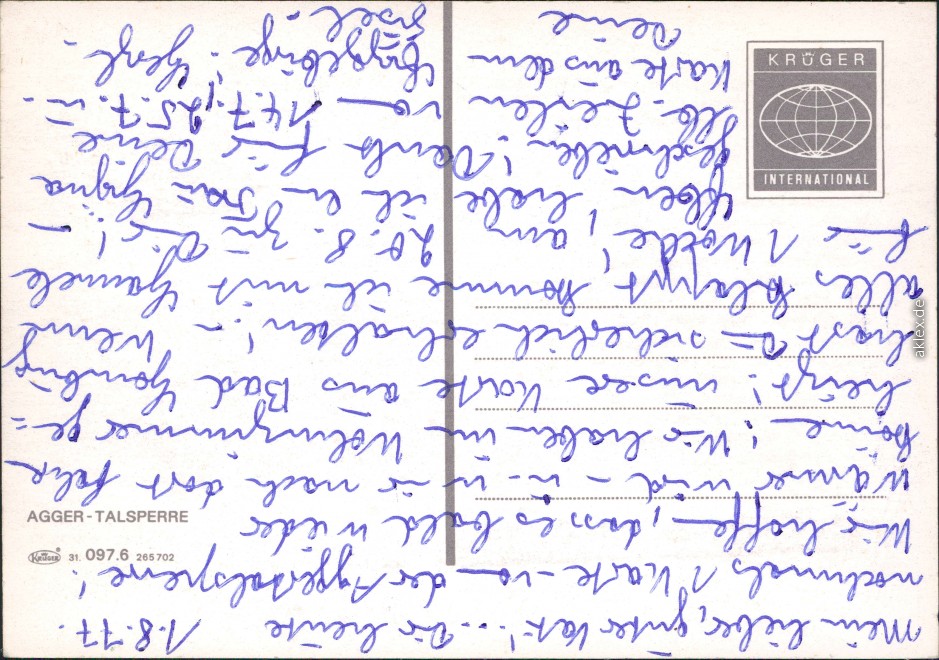 KRÜGER
INTERNATIONAL
AGGER-TALSPERRE
KRÜGER 31. 097.6 265702
Mein lieber, guter ... Dir heute 1.8.77.
nochmals 1 Karte von der Aggertalsperre!
Wir hoffen, dass es bald wieder
wärmer wird – u. wir nach dort
können! Wir haben im Wohnzimmer ge=
heizt! Unsere Karte aus Bad Homburg
hast Du sicherlich erhalten! – Wenn
alles klappt komme ich mit Hannele
für 1 Woche, am 20.8. zu Dir! –
Eben, habe ich an Frau
geschrieben! Dank für Deine
lb. Zeilen vom 14.7., 25.7. u.
Karte aus dem Erzgebirge. Herzl.
Deine Gisel.
aklex.de